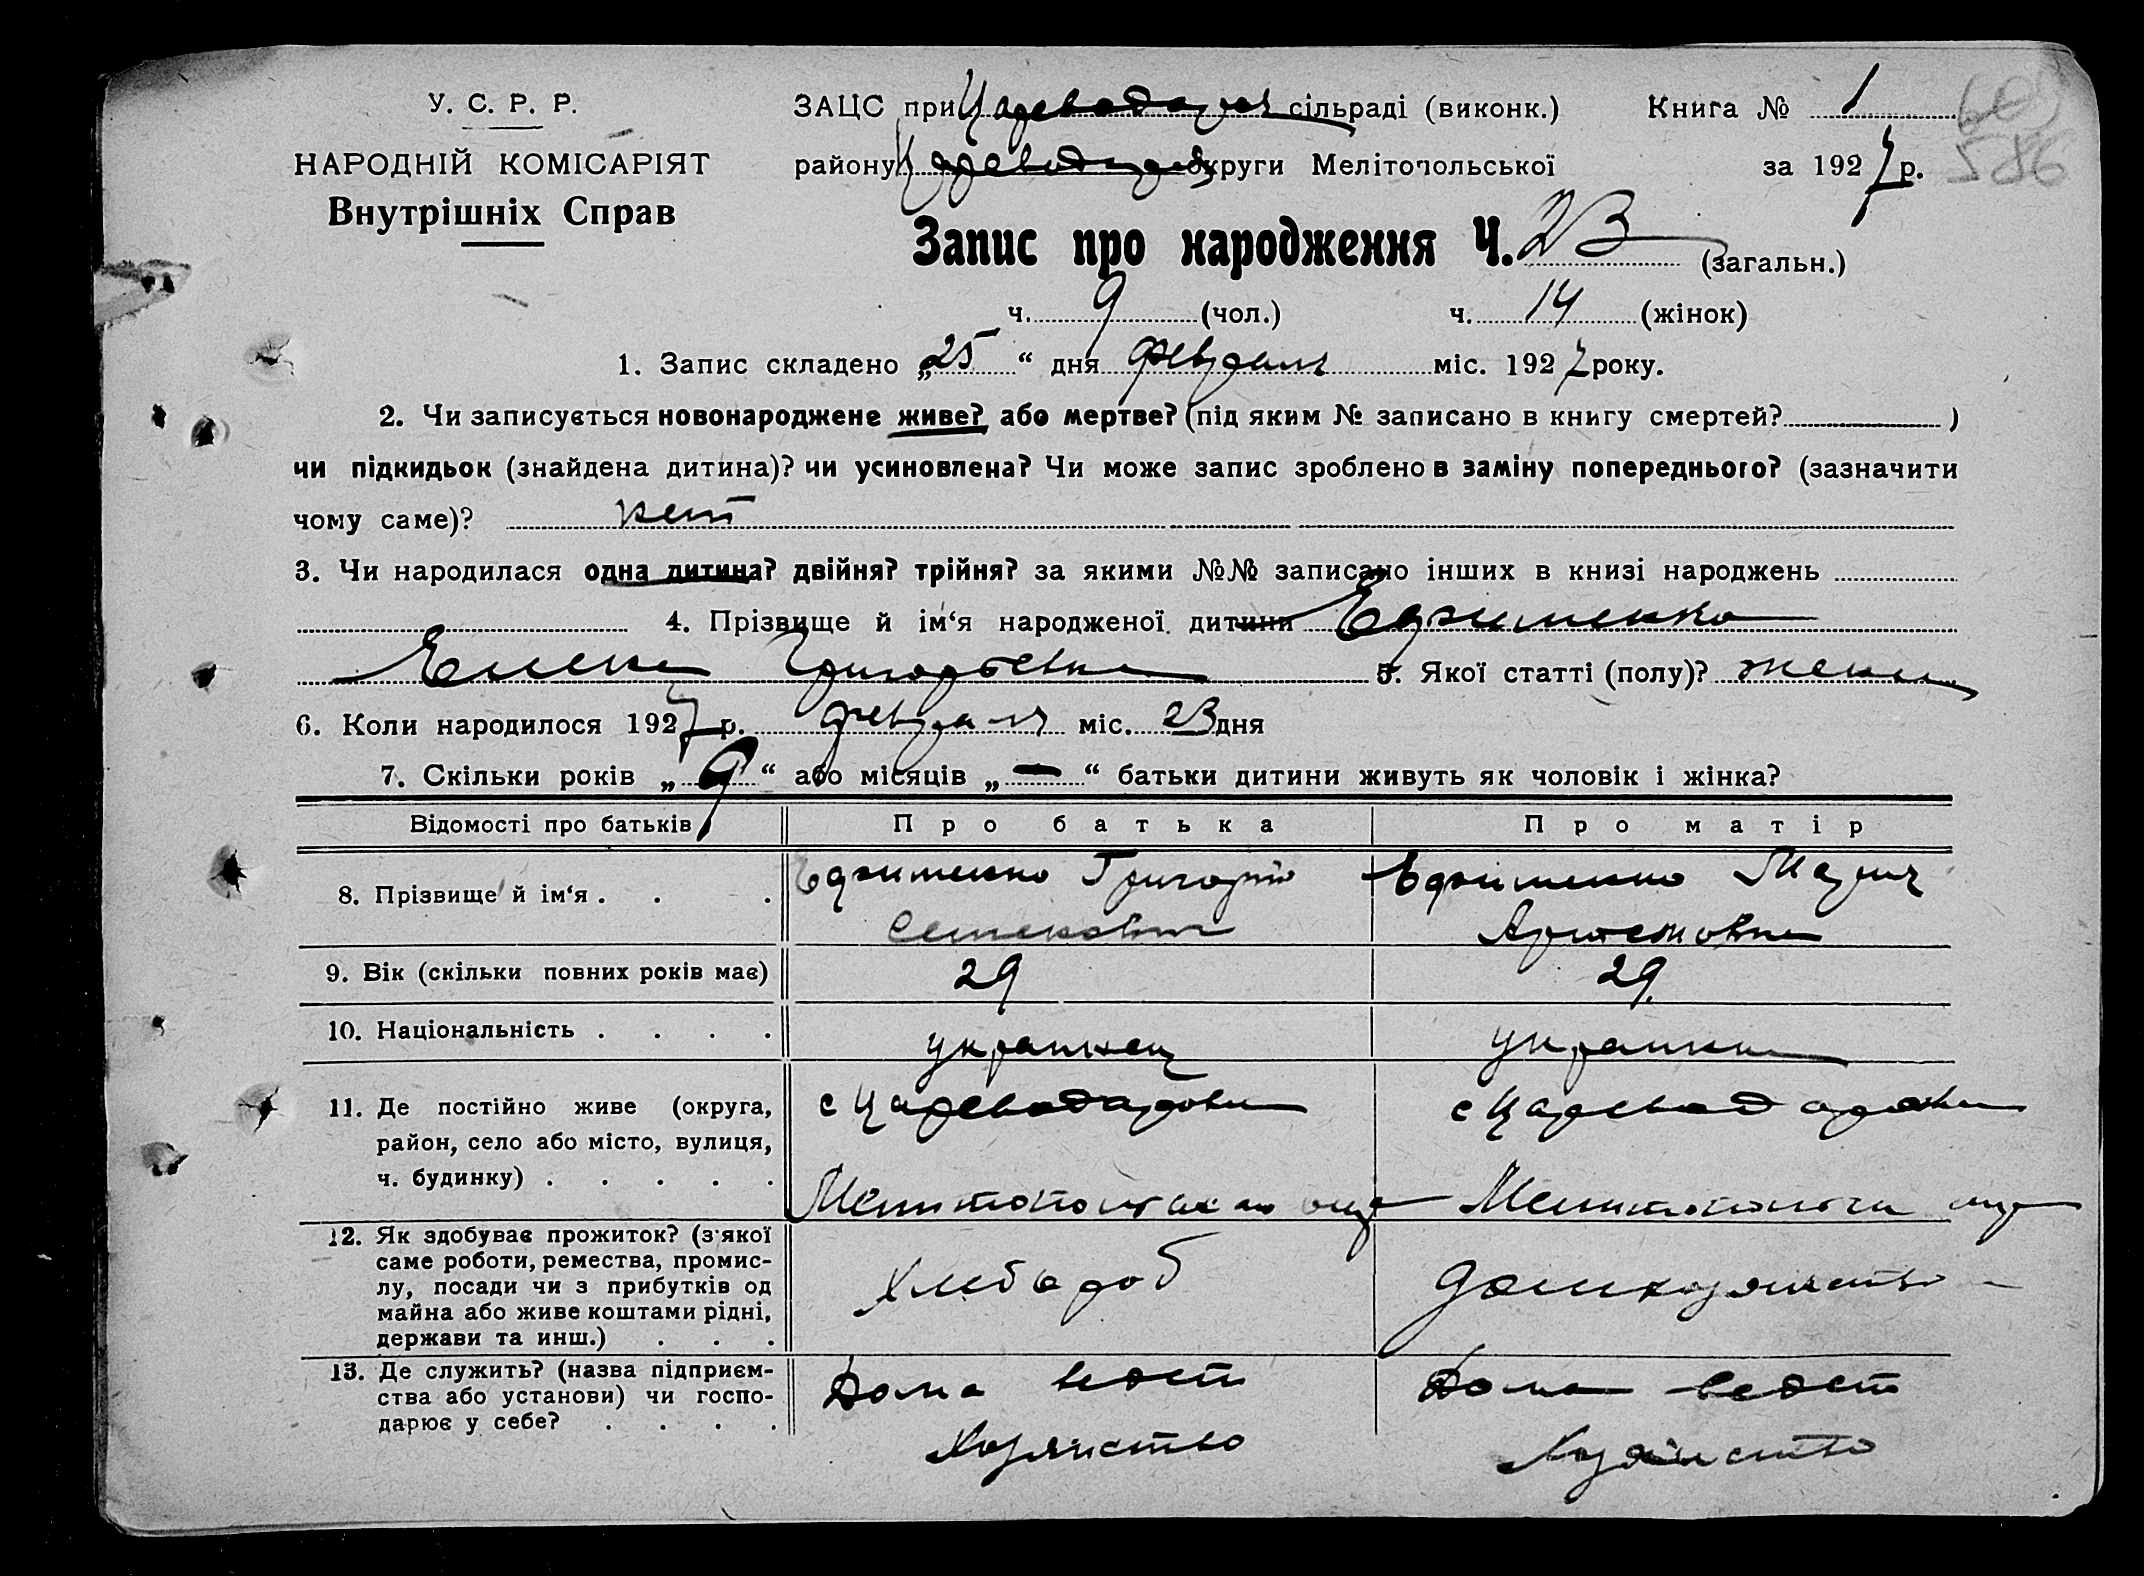 У. С. Р. Р.
НАРОДНІЙ КОМІСАРІЯТ
Внутрішніх Справ
ЗАЦС при сільраді (виконк.) Книга № 1
району округи Мелітопольської за 1927 р.
586
Запис про народження Ч. 23 (загальн.)
ч. 9 (чол.) ч. 14 (жінок)
1. Запис складено „25“ дня февраля міс. 1927 року.
2. Чи записується новонароджене живе? або мертве? (під яким № записано в книгу смертей? )
чи підкидьок (знайдена дитина)? чи усиновлена? Чи може запис зроблено в заміну попереднього? (зазначити
чому саме)? нет
3. Чи народилася одна дитина? двійня? трійня? за якими №№ записано інших в книзі народжень
4. Прізвище й ім‘я народженої дитини Ефименко
Елена Григорьевна 5. Якої статті (полу)? женск
6. Коли народилося 1927 р. февраля міс. 23 дня
7. Скільки років „9“ або місяців „—“ батьки дитини живуть як чоловік і жінка?
Відомості про батьків Про батька Про матір
8. Прізвище й ім‘я . . . Ефименко Григорий Ефименко Мария
Семенович Артемовна
9. Вік (скільки повних років має) 29 29
10. Національність . . . . украинец украинка
11. Де постійно живе (округа, с Цареводаровка с Цареводаровка
район, село або місто, вулиця,
ч. будинку) . . . . . Мелитопольского окр Мелитопольск окр
12. Як здобуває прожиток? (з'якої
саме роботи, ремества, промис-
лу, посади чи з прибутків од Хлебороб Домхозяйство
майна або живе коштами рідні,
держави та инш.) . . .
13. Де служить? (назва підприєм- Дома ведет Дома ведет
ства або установи) чи госпо-
дарює у себе? . . . . Хозяйство Хозяйство